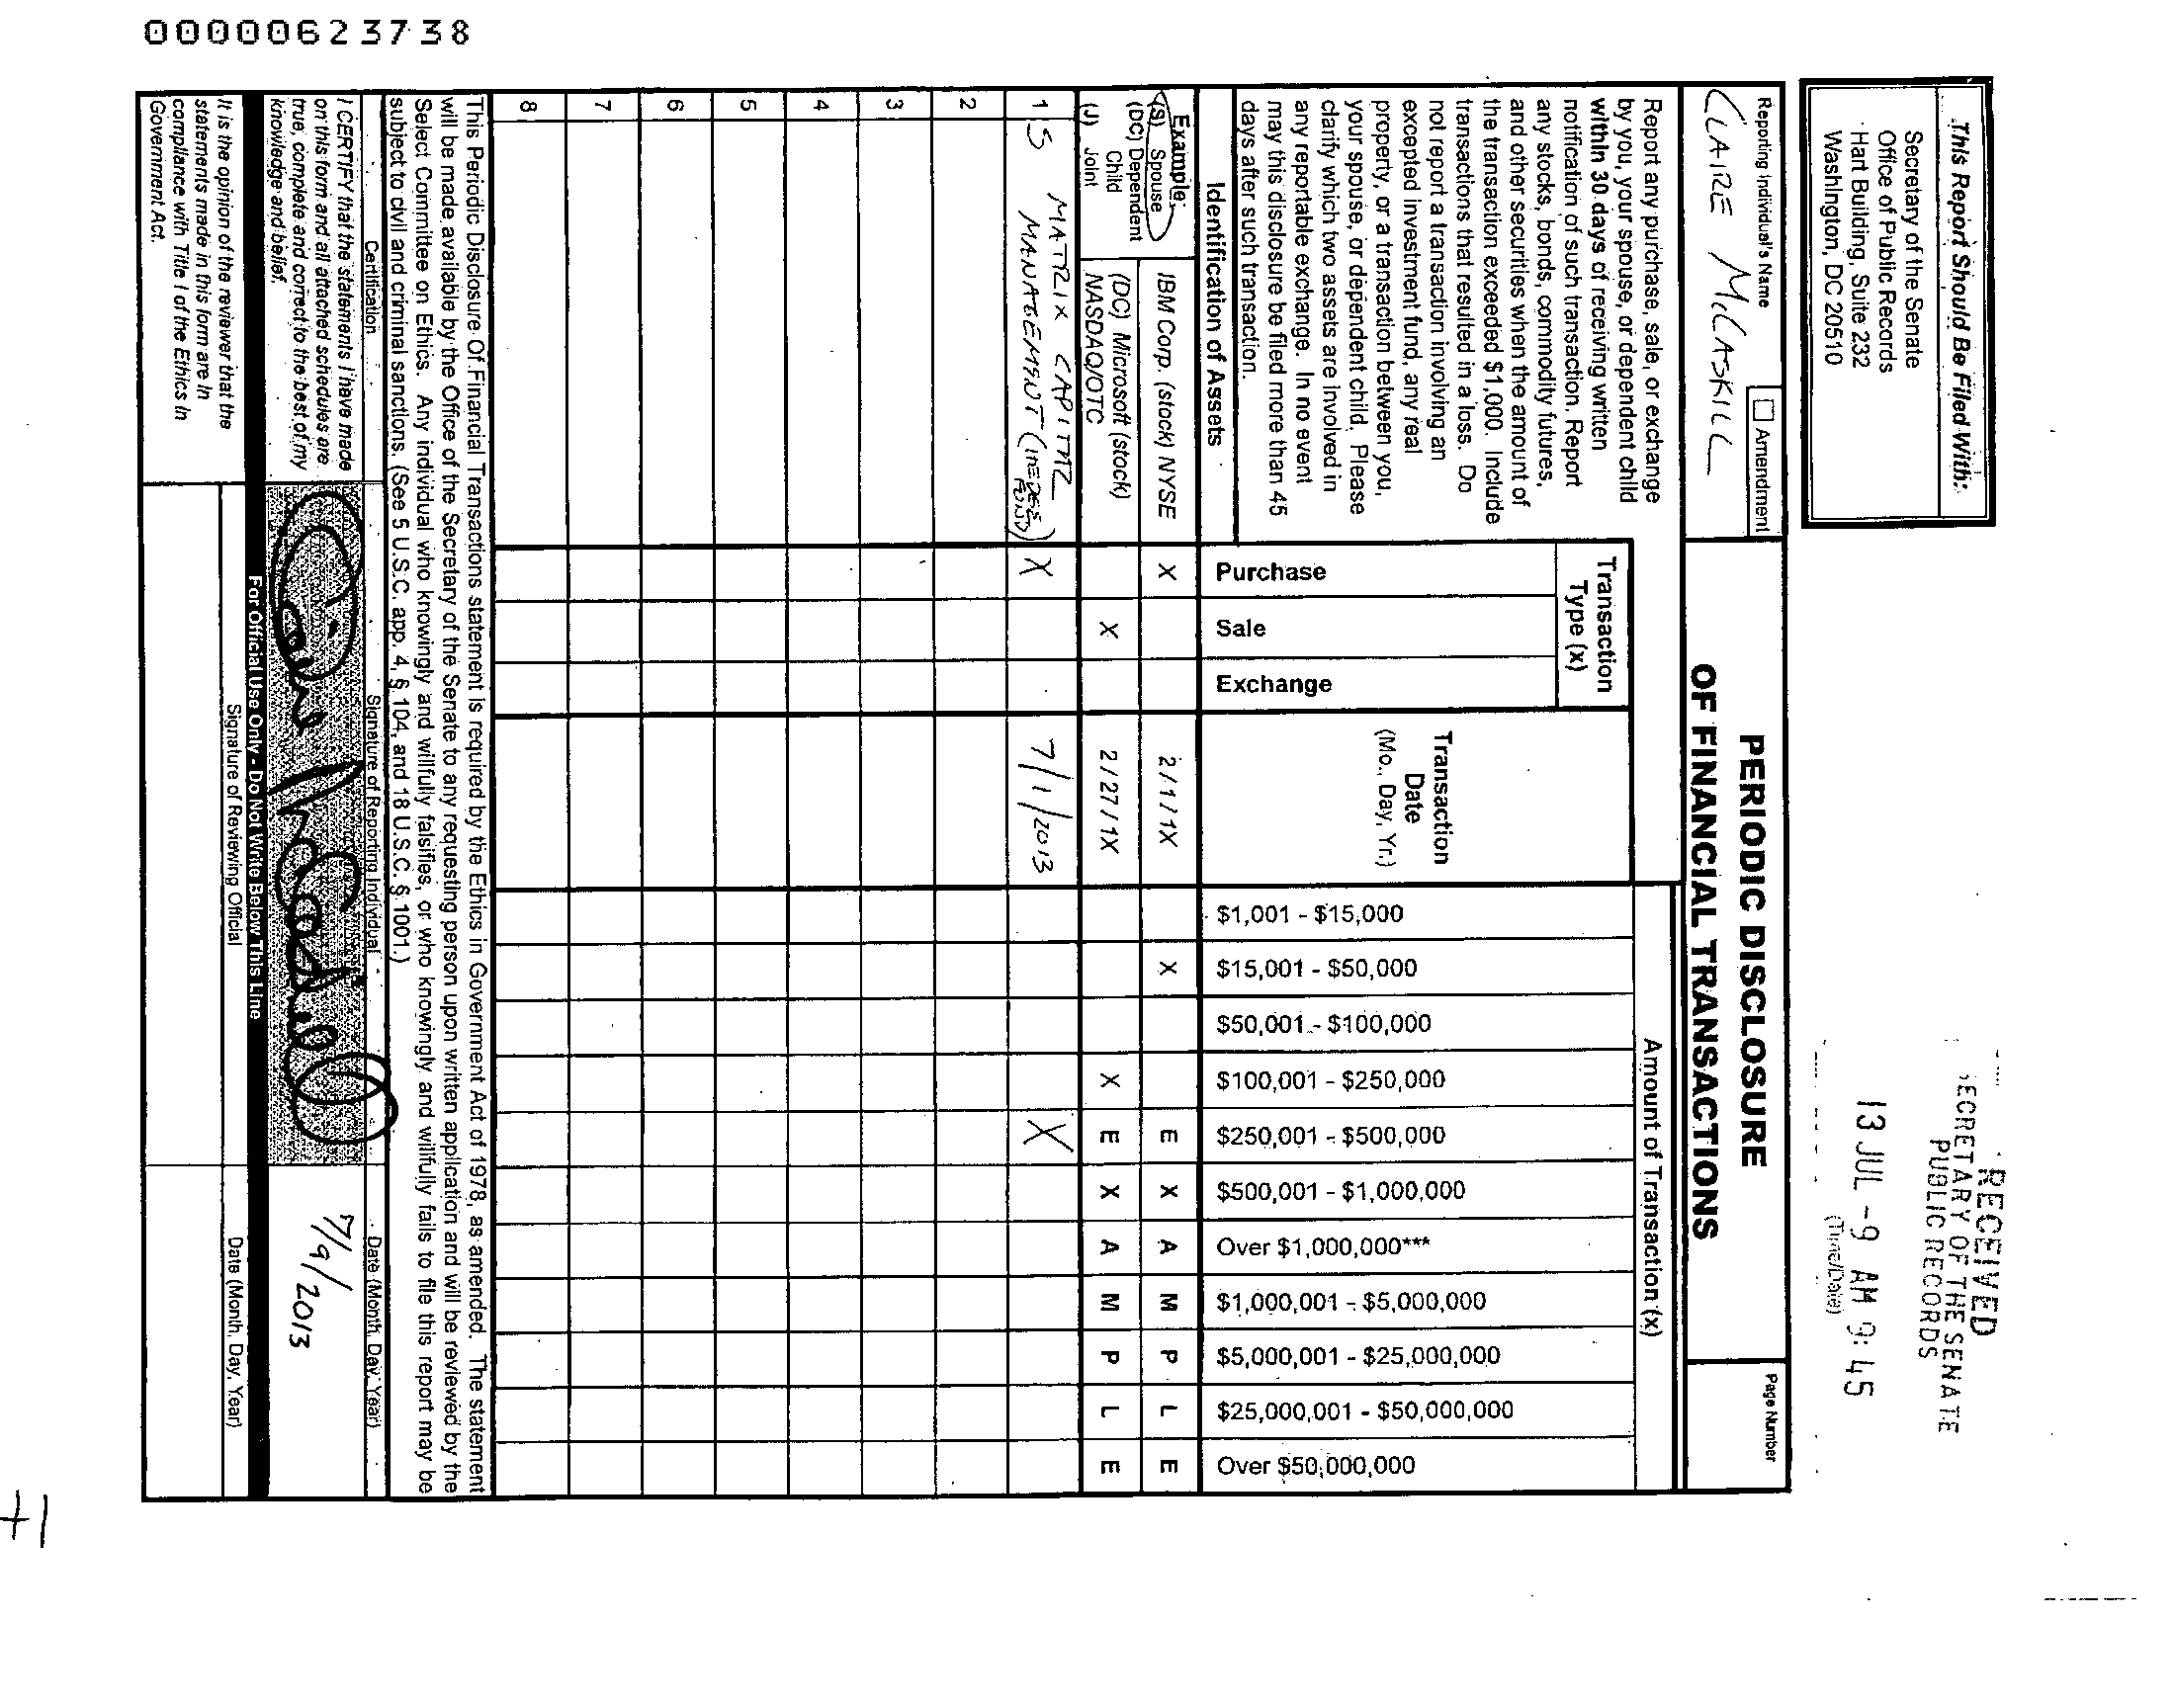 00000623738
This Report Should Be Filed With:
Secretary of the Senate
Office of Public Records
Hart Building, Suite 232
Washington, DC 20510
RECEIVED
SECRETARY OF THE SENATE
PUBLIC RECORDS
13 JUL -9 AM 9:45
(Time/Date)
Reporting Individual's Name
Amendment
CLAIRE McCASKILL
PERIODIC DISCLOSURE
OF FINANCIAL TRANSACTIONS
Page Number
Report any purchase, sale, or exchange
by you, your spouse, or dependent child
within 30 days of receiving written
notification of such transaction. Report
any stocks, bonds, commodity futures,
and other securities when the amount of
the transaction exceeded $1,000. Include
transactions that resulted in a loss. Do
not report a transaction involving an
excepted investment fund, any real
property, or a transaction between you,
your spouse, or dependent child. Please
clarify which two assets are involved in
any reportable exchange. In no event
may this disclosure be filed more than 45
days after such transaction.
Identification of Assets
Transaction
Type (x)
Purchase
Sale
Exchange
Transaction
Date
(Mo., Day, Yr.)
Amount of Transaction (x)
$1,001 - $15,000
$15,001 - $50,000
$50,001 - $100,000
$100,001 - $250,000
$250,001 - $500,000
$500,001 - $1,000,000
Over $1,000,000***
$1,000,001 - $5,000,000
$5,000,001 - $25,000,000
$25,000,001 - $50,000,000
Over $50,000,000
Example:
(S) Spouse
(DC) Dependent
Child
(J) Joint
IBM Corp. (stock) NYSE X 2/1/1X X E X A M P L E
(DC) Microsoft (stock)
NASDAQ/OTC X 2/27/1X X E X A M P L E
1 S MATRIX CAPITAL
MANAGEMENT (HEDGE FUND) X 7/1/2013 X
2
3
4
5
6
7
8
This Periodic Disclosure Of Financial Transactions statement is required by the Ethics in Government Act of 1978, as amended. The statement
will be made available by the Office of the Secretary of the Senate to any requesting person upon written application and will be reviewed by the
Select Committee on Ethics. Any individual who knowingly and willfully falsifies, or who knowingly and willfully fails to file this report may be
subject to civil and criminal sanctions. (See 5 U.S.C. app. 4, § 104, and 18 U.S.C. § 1001.)
Certification
Signature of Reporting Individual
Date (Month, Day, Year)
I CERTIFY that the statements I have made
on this form and all attached schedules are
true, complete and correct to the best of my
knowledge and belief.
Claire McCaskill
7/9/2013
For Official Use Only - Do Not Write Below This Line
It is the opinion of the reviewer that the
statements made in this form are in
compliance with Title I of the Ethics in
Government Act.
Signature of Reviewing Official
Date (Month, Day, Year)